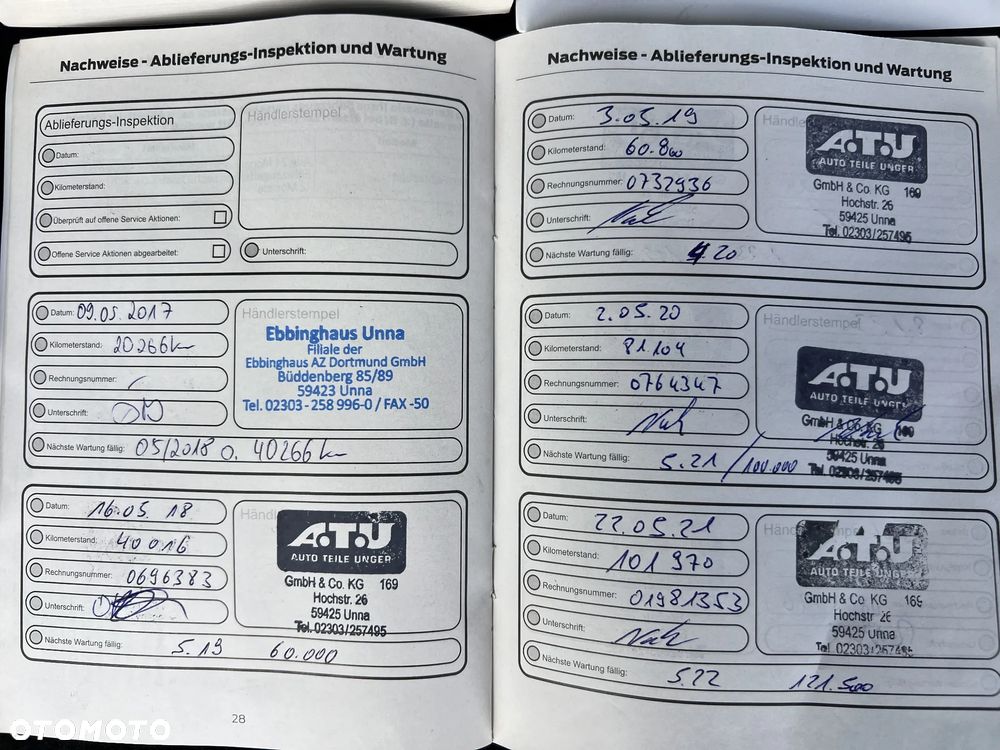 Nachweise - Ablieferungs-Inspektion und Wartung
Ablieferungs-Inspektion
Datum:
Kilometerstand:
Überprüft auf offene Service Aktionen:
Offene Service Aktionen abgearbeitet:
Händlerstempel
Unterschrift:
Datum: 09.05.2017
Kilometerstand: 20266km
Rechnungsnummer:
Unterschrift:
Nächste Wartung fällig: 05/2018 o. 40266km
Händlerstempel
Ebbinghaus Unna
Filiale der
Ebbinghaus AZ Dortmund GmbH
Büddenberg 85/89
59423 Unna
Tel. 02303 - 258 996-0 / FAX -50
Datum: 16.05.18
Kilometerstand: 40016
Rechnungsnummer: 0696383
Unterschrift:
Nächste Wartung fällig: 5.19 60.000
A.T.U
AUTO TEILE UNGER
GmbH & Co. KG 169
Hochstr. 26
59425 Unna
Tel. 02303/257495
28
Nachweise - Ablieferungs-Inspektion und Wartung
Datum: 3.05.19
Kilometerstand: 60.800
Rechnungsnummer: 0732936
Unterschrift:
Nächste Wartung fällig: 4.20
A.T.U
AUTO TEILE UNGER
GmbH & Co. KG 169
Hochstr. 26
59425 Unna
Tel. 02303/257495
Datum: 2.05.20
Kilometerstand: 81104
Rechnungsnummer: 0764347
Unterschrift:
Nächste Wartung fällig: 5.21 / 100.000
Händlerstempel
A.T.U
AUTO TEILE UNGER
GmbH & Co. KG 169
Hochstr. 26
59425 Unna
Tel. 02303/257495
Datum: 22.05.21
Kilometerstand: 101970
Rechnungsnummer: 01981353
Unterschrift:
Nächste Wartung fällig: 5.22 121.500
Händlerstempel
A.T.U
AUTO TEILE UNGER
GmbH & Co. KG 169
Hochstr. 26
59425 Unna
Tel. 02303/257495
OTOMOTO